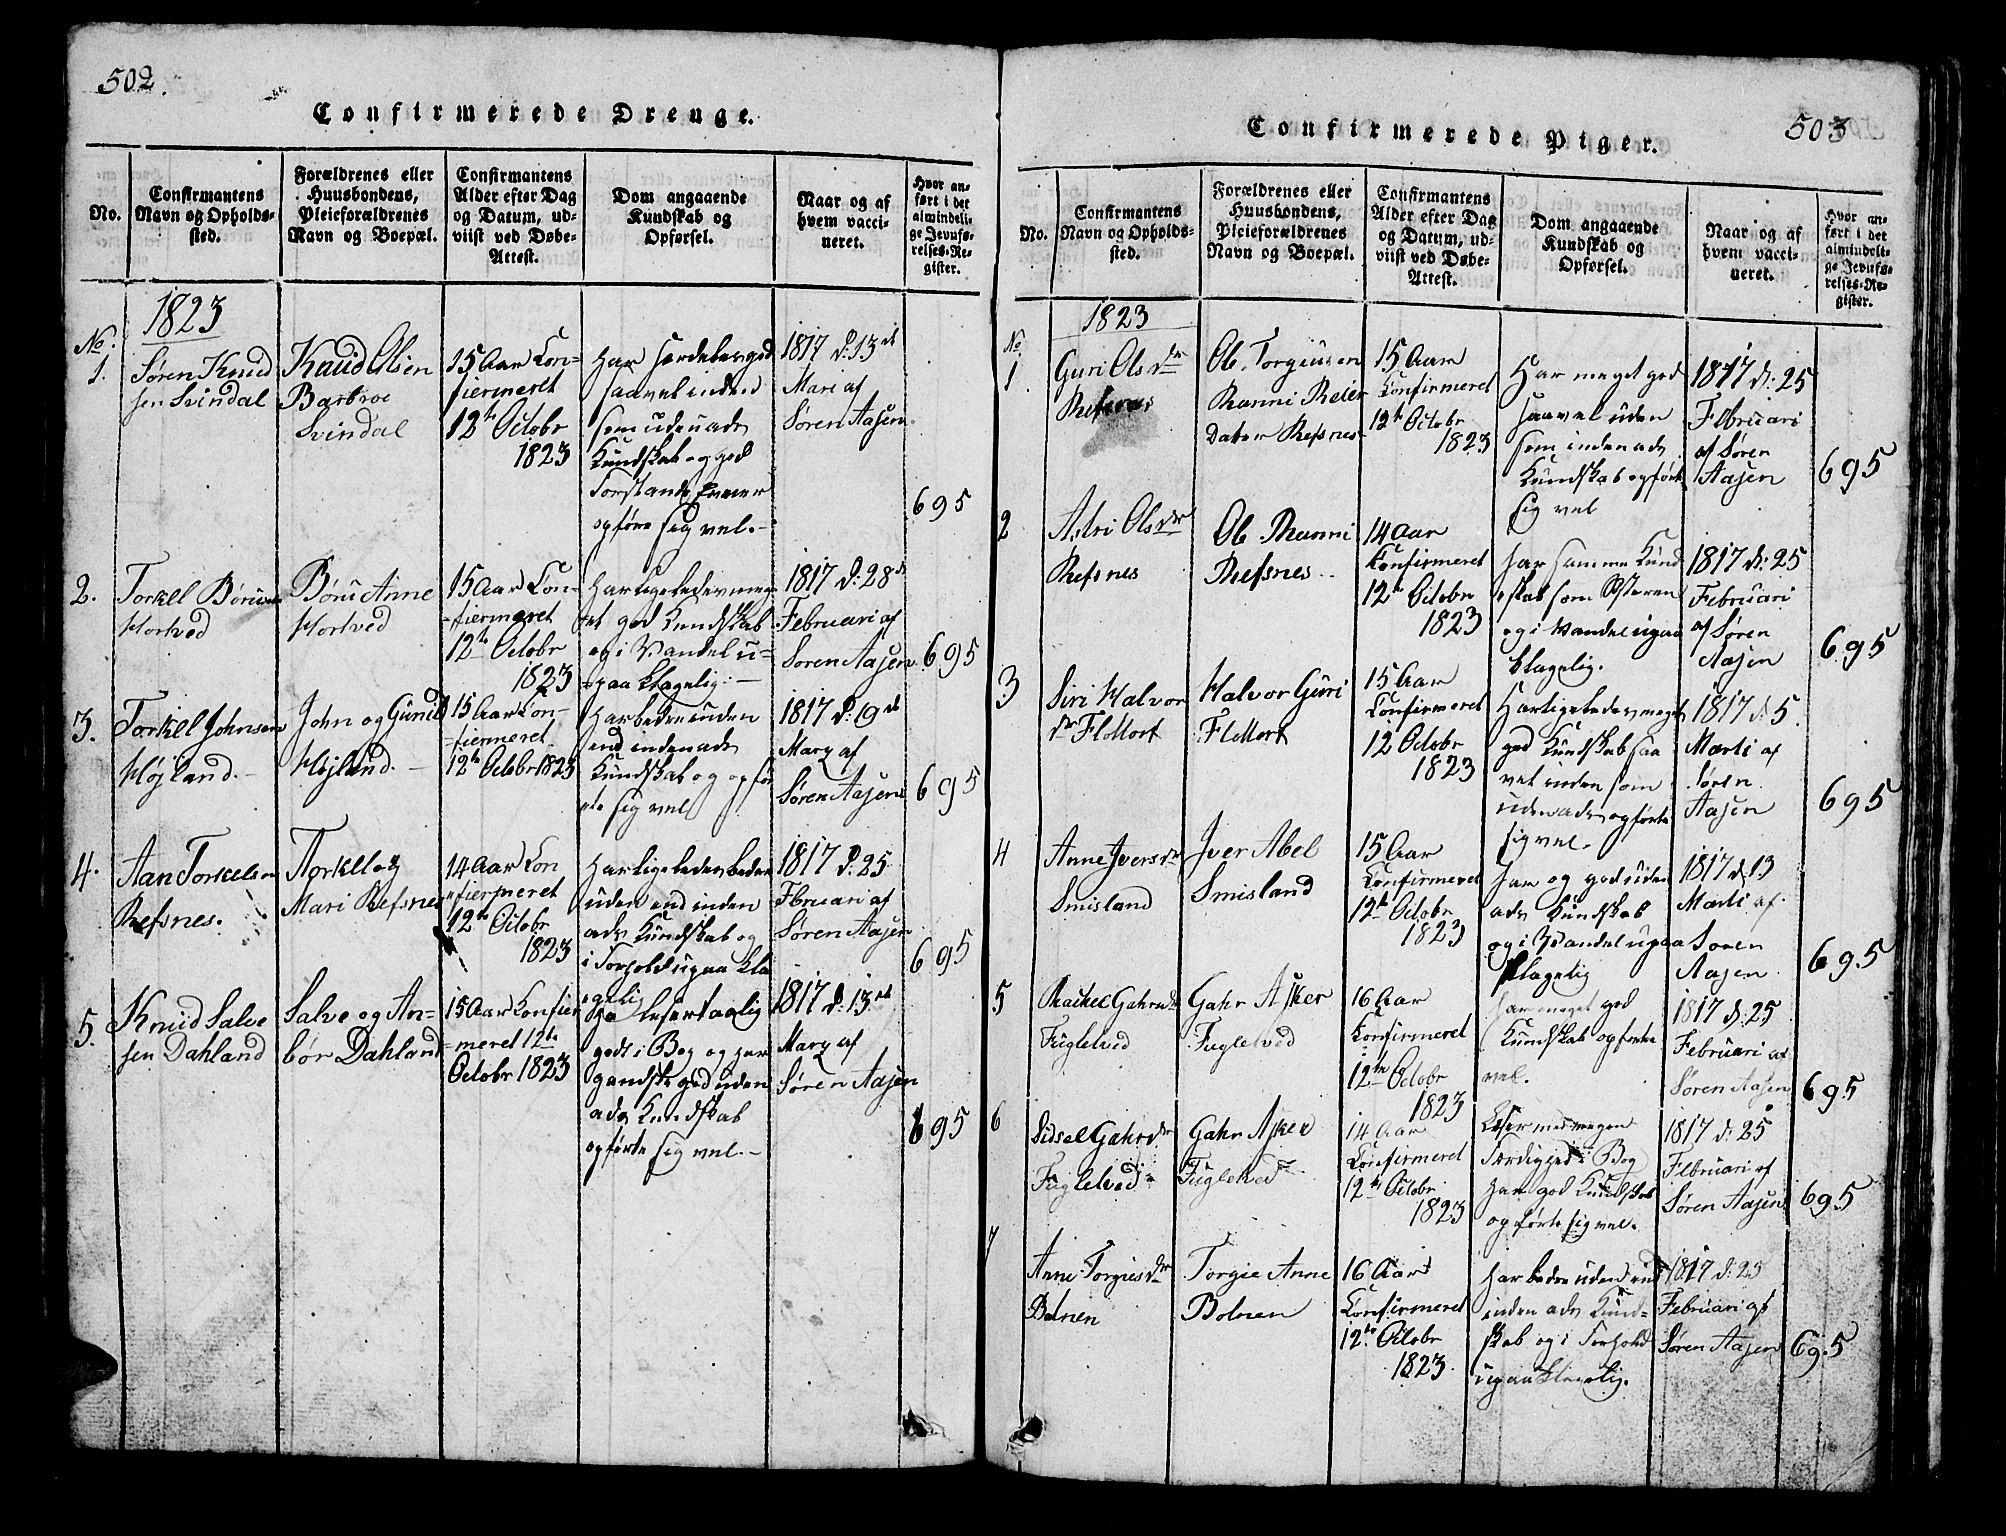 502.
Confirmerede Drenge.
No.
Confirmantens
Navn og Opholds-
sted.
Forældrenes eller
Huusbondens,
Pleieforældrenes
Navn og Boepæl.
Confirmantens
Alder efter Dag
og Datum, ud-
viist ved Døbe-
Attest.
Dom angaaende
Kundskab og
Opførsel.
Naar og af
hvem vacci-
neret.
Hvor an-
ført i det
almindeli-
ge Jevnfø-
relses-Re-
gister.
1823
No.
1.
Søren Knud
sen Svindal
Knud Olsen
Barbroe
Svindal
15 Aar Con-
fiermeret
12te Octobr
1823
Har særdeles god
saavel inden
som udenads
Kundskab og god
Forstand
opføre sig vel.-
1817 d: 13de
Mari af
Søren Aasen.
695
2.
Torkel Børuesen
Hortved
Børu Anne
Hortved
15 Aar Con-
-fiermeret
12te Octobr
1823
Har ligeledes meg-
et god Kundskab
og i Vandel u-
paa klagelig.-
1817 d: 28de
Februari af
Søren Aasen
695
3.
Torkel Johnsen
Højland.-
John og Gunild
Højland.-
15 Aar Con-
-fiermeret
12te Octobr 1823
Har bedre uden
end indenads
Kundskab og opfør
te sig vel
1817 d: 19de
Marz af
Søren Aasen
695
4.
Aan Torkelsen
Refsnes.
Torkel og
Mari Refsnes
14 Aar Con
fiermeret
12te Octobr
1823
Har ligeledes bedre
uden end inden
ads Kundskab og
i Forhold upaa kla
gelig
1817 d. 25
Fbruari af
Søren Aasen
695
5.
Knud Salve
sen Dahland
Salve og An-
bør Dahland
15 Aar Confier
-meret 12te
Octobr 1823
læser taalig
godt i Bog og har
gandske god uden
ads Kundskab
opførte sig vel.-
1817 d: 13de
Marz af
Søren Aasen
695
503
Confirmerede Piger.
No.
Confirmantens
Navn og Opholds-
sted.
Forældrenes eller
Huusbondens,
Pleieforældrenes
Navn og Boepæl.
Confirmantens
Alder efter Dag
og Datum, ud-
viist ved Døbe-
Attest.
Dom angaaende
Kundskab og
Opførsel.
Naar og af
hvem vacci-
neret.
Hvor an-
ført i det
almindeli-
ge Jevnfø-
relses-Re-
gister.
1823
No
1
Guri Olsdr
Refsnes
Ole Torgiusen
Ranni Reier
Dater Refsnes
15 Aar
Confirmeret
12te Octobr
1823
Har meget god
saavel uden
som inden ads
Kundskab opførte
sig vel
1817 d: 25
Flbruari
af Søren
Aasen
695
2
Astri Olsdr
Refsnes
Ole Ranni
Refsnes
14 Aar
Confirmeret
12te Octobr
1823
Har samme Kund
skab som Østeren
og i Vandel upaa
klagelig.
1817 d: 25
Februari
af Søren
Aasen
695
3
Siri Halvor
dr Flottorf
Halvor Guri
Flottorf
15 Aar
Confirmeret
12 Octobr
1823
Har ligeledes meget
god Kundskab saa
vel inden som
udenads opførte
sig vel.
1817 d. 5.
Marti af
Søren
Aasen
695
4
Anne Iversdr
Smisland
Iver Abel
Smisland
15 Aar
Confirmeret
12te Octobr
1823
har og god uden
ads Kundskab
og i Vandel upaa
klagelig
1817 d. 13
Marti af
Soren
Aasen
695
5
Rachel Gahrsdr
Fuglelved
Gahr Asker
Fuglelved
16 Aar
Confirmeret
12te Octobr
1823
har meget god
Kundskab opførte
vel.
1817 d: 25
Februari af
Søren Aasen
695
6
Sidsel Gahrsdr
Fuglelved
Gahr Asker
Fuglelved
14 Aar
Confirmeret
12te Octobr
1823
Læser med megen
Færdighed i Bog
har god Kundskab
opførte sig vel.
1817 d: 25
Flbruari af
Søren Aasen
695
7
Anne Torgiesdr
Bolnen
Torgie Anne
Bolnen
16 Aar
Confirmeret
12te Octobr
1823
har bedre uden end
inden ads Kund-
skab og i Forhold
upaa klagelig.
1817 d: 25
Februari af
Søren Aasen
695